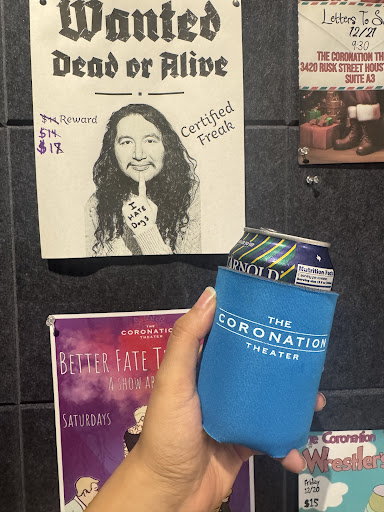 Wanted
Dead or Alive
Reward
$14
$18
Certified
Freak
I
HATE
Dogs
Letters To
12/21
9:30
THE CORONATION
3420 RUSK STREET
SUITE A3
ARNOLD
Nutrition Facts
THE
CORONATION
THEATER
THE
CORONATION
THEATER
BETTER FATE
A SHOW
SATURDAYS
The Coronation
Wrestler's
Friday
12/20
$15